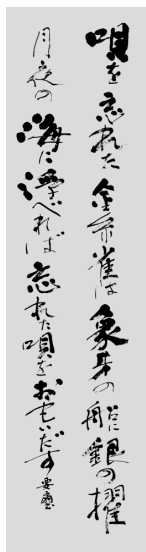 唄を忘れた金糸雀は象牙の船に銀の櫂
月夜の海に浮べれば忘れた唄をおもいだす